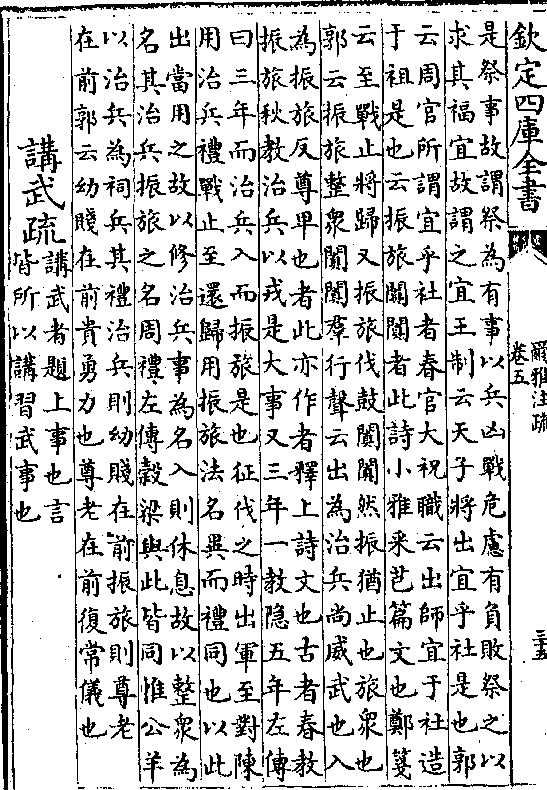 欽定四庫全書
爾雅注疏
卷五
三十五
是祭事故謂祭為有事以兵凶戰危慮有負敗祭之以
求其福宜故謂之宜王制云天子將出宜乎社是也郭
云周官所謂宜乎社者春官大祝職云出師宜于社造
于祖是也云振旅闐闐者此詩小雅采芑篇文也鄭箋
云至戰止將歸又振旅伐鼓闐闐然振猶止也旅衆也
郭云振旅整衆闐闐羣行聲云出為治兵尚威武也入
為振旅反尊卑也者此亦作者釋上詩文也古者春教
振旅秋教治兵以戎是大事又三年一教隱五年左傳
曰三年而治兵入而振旅是也征伐之時出軍至對陳
用治兵禮戰止至還歸用振旅法名異而禮同也以此
出當用之故以修治兵事為名入則休息故以整衆為
名其治兵振旅之名周禮左傳穀梁與此皆同惟公羊
以治兵為祠兵其禮治兵則幼賤在前振旅則尊老
在前郭云幼賤在前貴勇力也尊老在前復常儀也
講武疏
講武者題上事也言
皆所以講習武事也